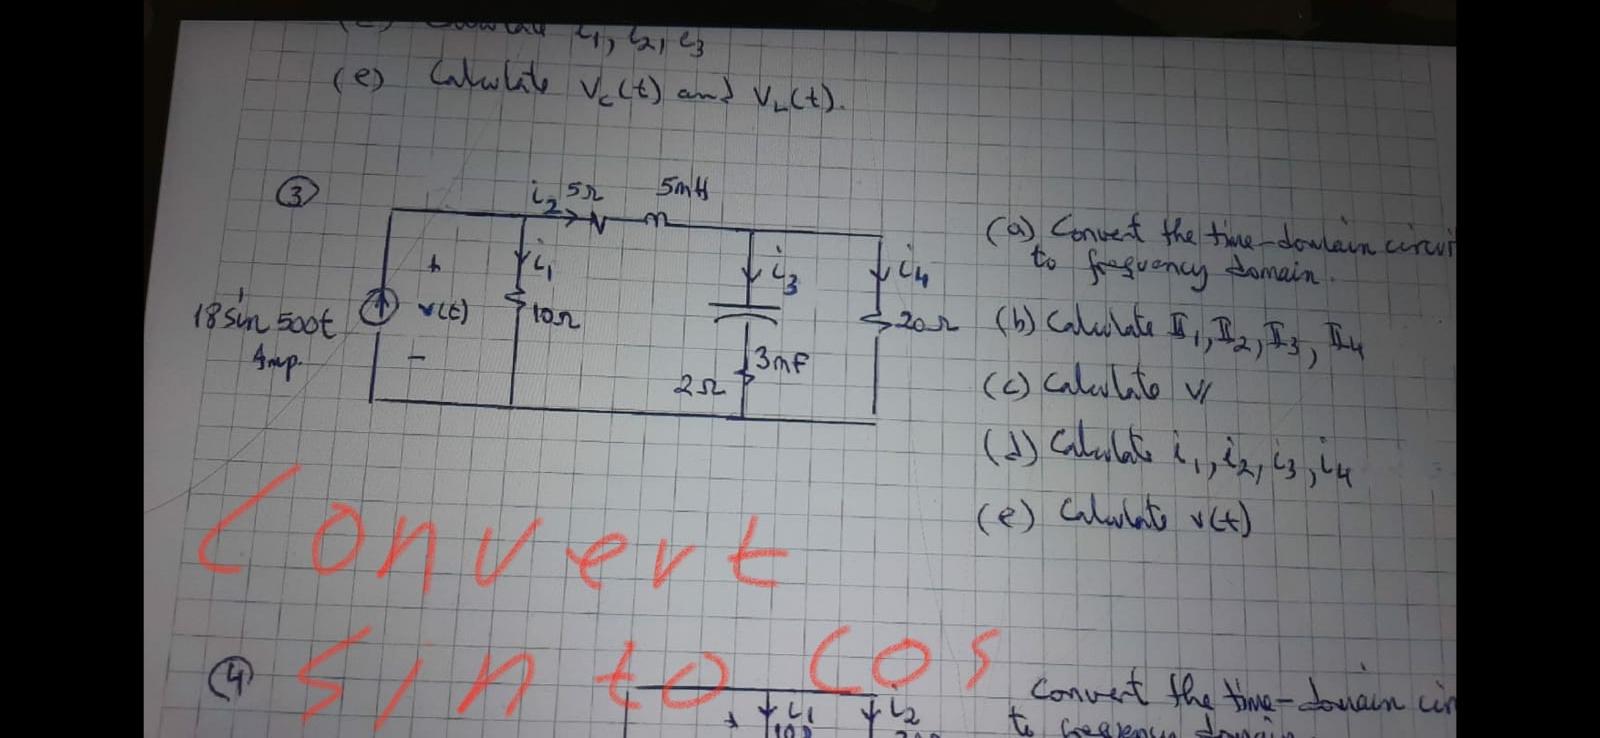 i₁, i₂, i₃
(e) Calculate Vc(t) and VL(t).
③
i₂ 5Ω 5mH
18 sin 500t
Amp.
+
v(t)
-
i₁
10Ω
i₃
3mF
2Ω
i₄
20Ω
(a) Convert the time-domain circui
to frequency domain.
(b) Calculate I₁, I₂, I₃, I₄
(c) Calculate V
(d) Calculate i₁, i₂, i₃, i₄
(e) Calculate v(t)
Convert
Sin to Cos
④
i₁ i₂
Convert the time-domain cir
to frequency domain